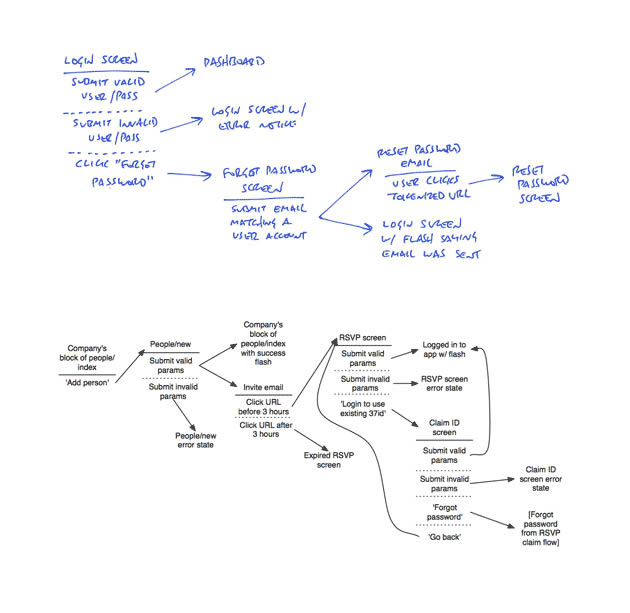 LOGIN SCREEN
SUBMIT VALID
USER/PASS
DASHBOARD
SUBMIT INVALID
USER/PASS
LOGIN SCREEN W/
ERROR NOTICE
CLICK "FORGOT
PASSWORD"
FORGOT PASSWORD
SCREEN
SUBMIT EMAIL
MATCHING A
USER ACCOUNT
RESET PASSWORD
EMAIL
USER CLICKS
TOKENIZED URL
RESET
PASSWORD
SCREEN
LOGIN SCREEN
W/ FLASH SAYING
EMAIL WAS SENT
Company's
block of people/
index
'Add person'
People/new
Submit valid
params
Submit invalid
params
People/new
error state
Company's
block of
people/index
with success
flash
Invite email
Click URL
before 3 hours
Click URL after
3 hours
Expired RSVP
screen
RSVP screen
Submit valid
params
Submit invalid
params
'Login to use
existing 37id'
Logged in to
app w/ flash
RSVP screen
error state
Claim ID
screen
Submit valid
params
Submit invalid
params
'Forgot
password'
'Go back'
Claim ID
screen error
state
[Forgot
password
from RSVP
claim flow]